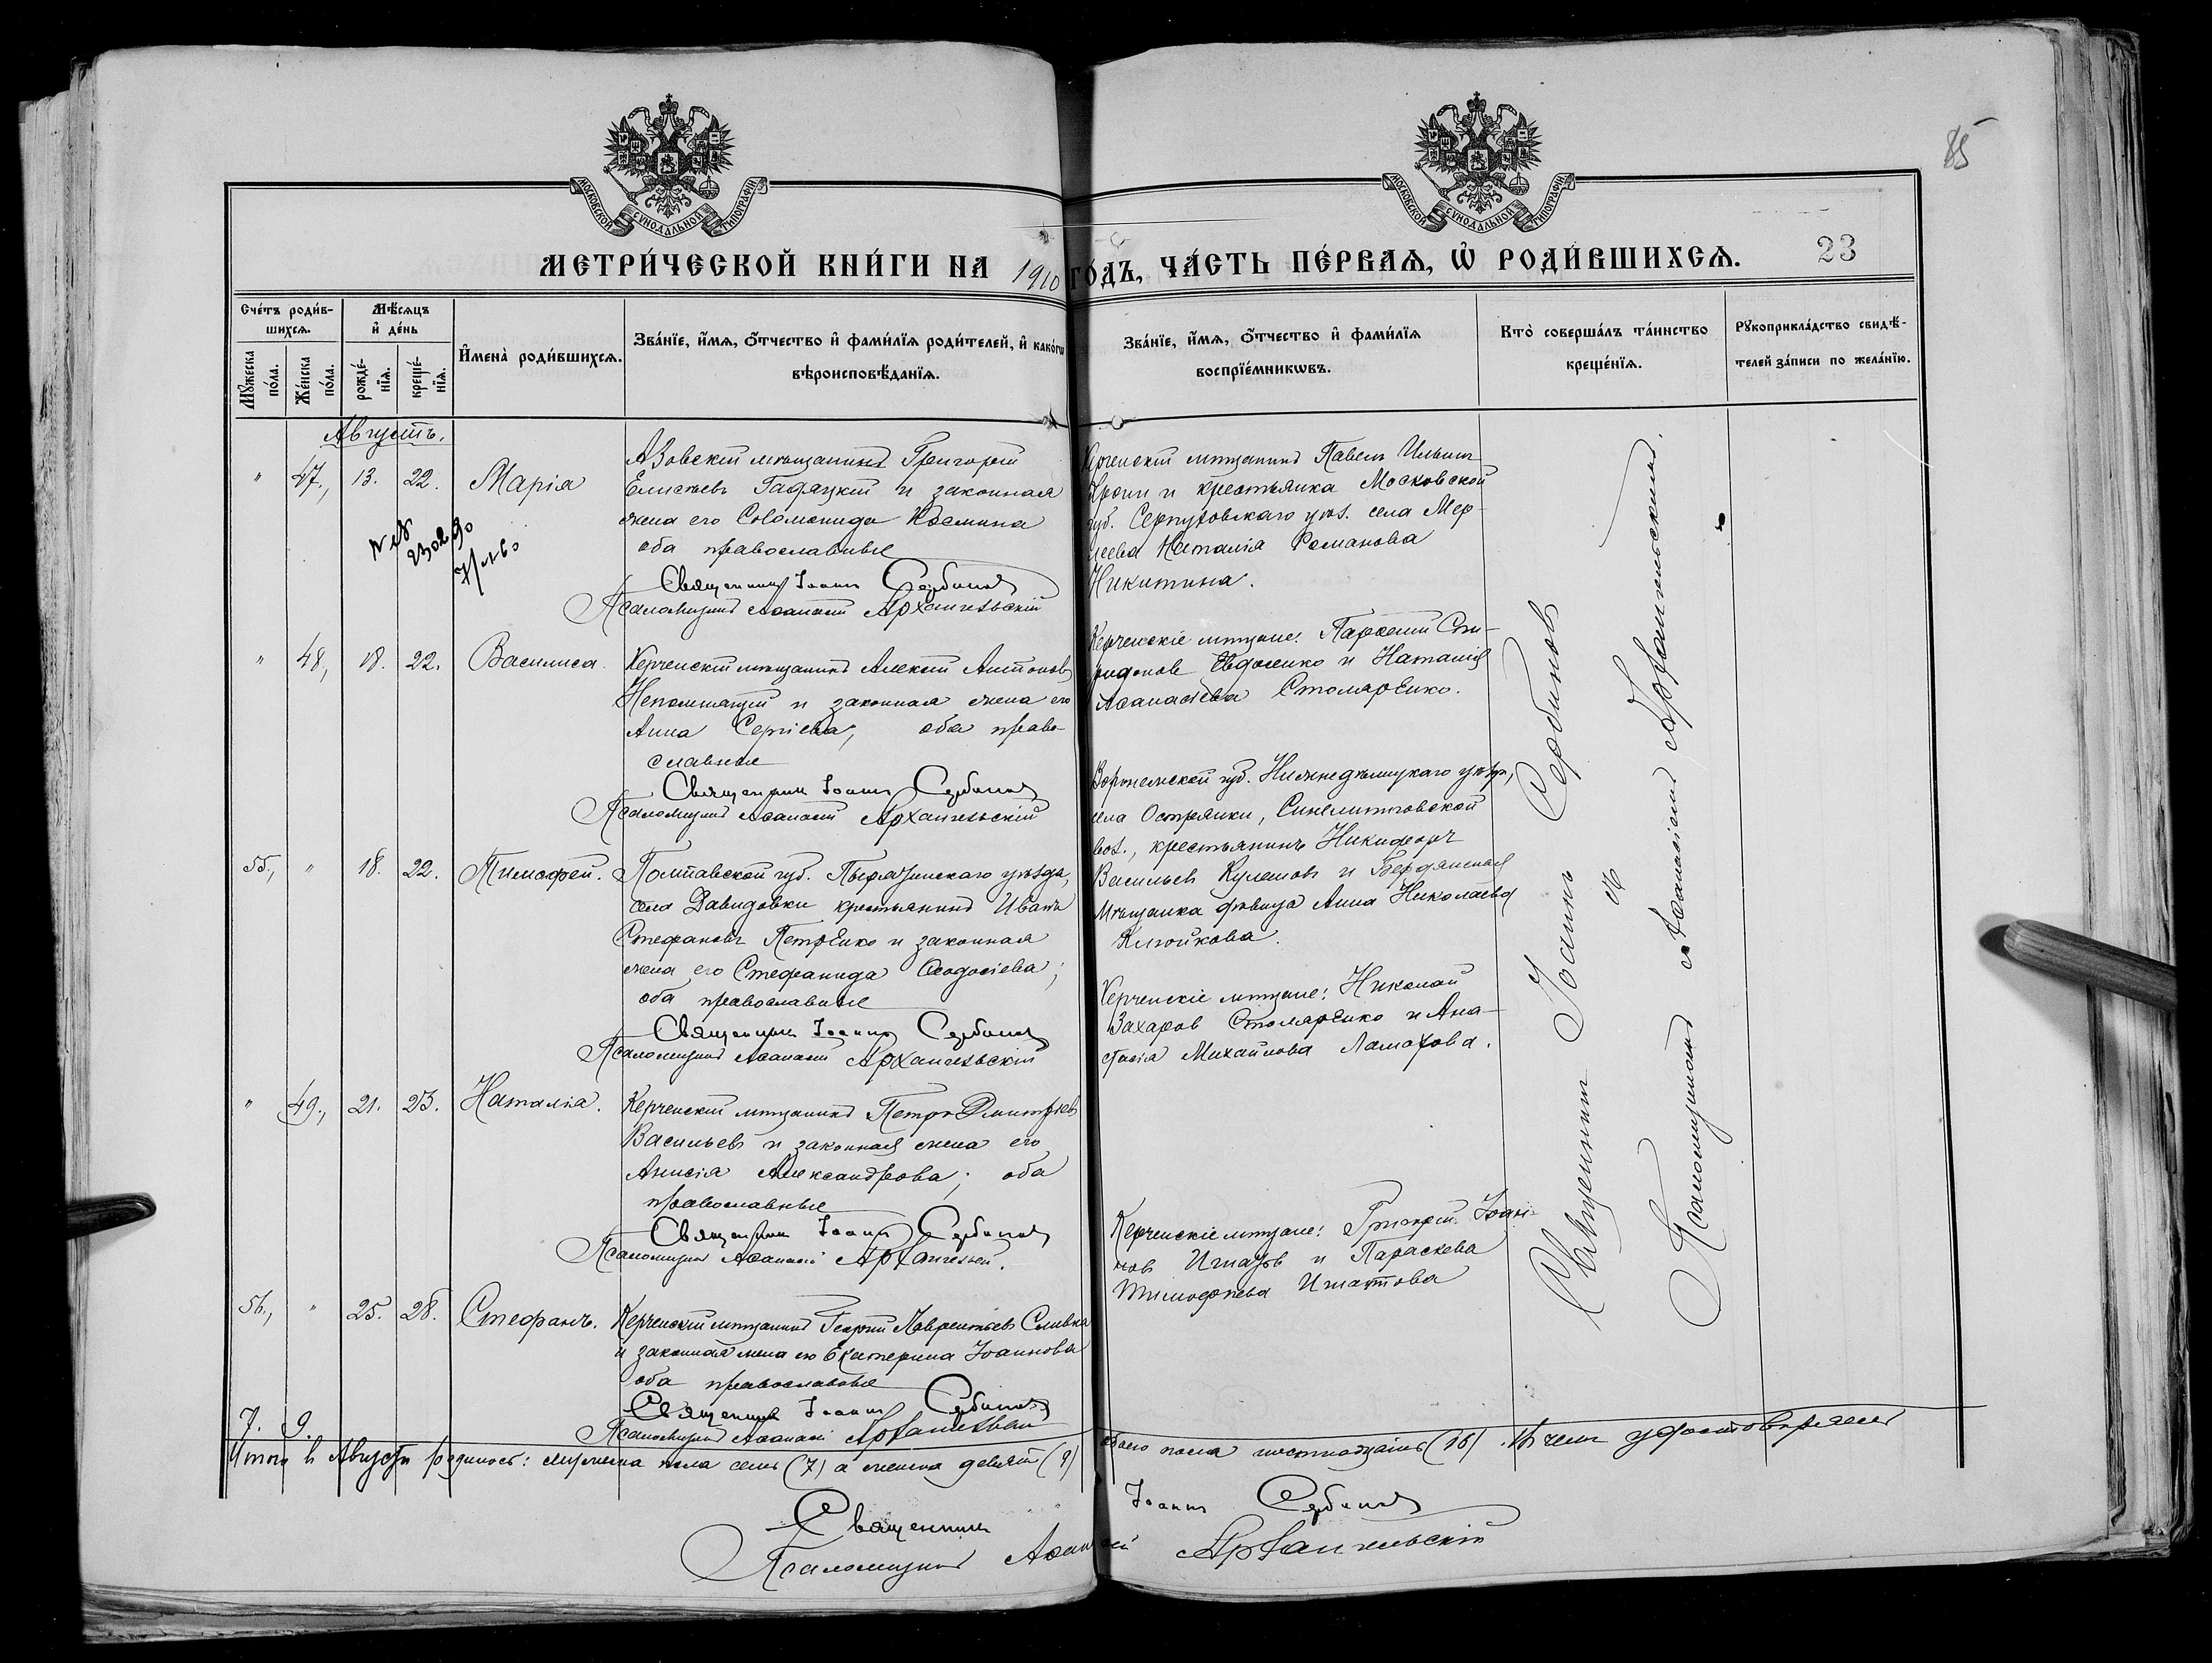 85
МОСКОВСКОЙ СѴНОДАЛЬНОЙ ТИПОГРАФІИ
МОСКОВСКОЙ СѴНОДАЛЬНОЙ ТИПОГРАФІИ
МЕТРИ́ЧЕСКОЙ КНИ́ГИ НА 1910 ГО́ДЪ, ЧА́СТЬ ПЕ́РВАѦ, Ѡ҆ РОДИ́ВШИХСѦ. 23
Сче́тъ роди́в-
шихсѧ.
Мꙋ́жеска по́ла.
Же́нска по́ла.
Мѣ́сѧцъ
и҆ де́нь
рожде́-
нїѧ.
креще́-
нїѧ.
И҆мена̀ роди́вшихсѧ.
Зва́нїе, и҆́мѧ, ѻ҆́тчество и҆ фами́лїѧ роди́телей, и҆ како́гѡ
вѣроисповѣ́данїѧ.
Зва́нїе, и҆́мѧ, ѻ҆́тчество и҆ фами́лїѧ
воспрїе́мникѡвъ.
Кто̀ соверша́лъ та́инство
креще́нїѧ.
Рꙋкоприкла́дство свидѣ́-
телей за́писи по жела́нїю.
Августъ.
" 47., 13. 22. Марія
Азовскій мѣщанинъ Григорій
Елисѣевъ Гадяцкій и законная
жена его Соломонида Косьмина
оба православные
Священникъ Іоаннъ Сербиновъ
Псаломщикъ Аѳанасій Архангельскій
Керченскій мѣщанинъ Павелъ Ильинъ
и крестьянка Московской
губ. Серпуховскаго уѣз. села
Наталія Романова
Никитина.
" 48., 18. 22. Василиса.
Керченскій мѣщанинъ Алексій Антоновъ
Непомнящій и законная жена его
Анна Сергіева; оба право-
славные
Священникъ Іоаннъ Сербиновъ
Псаломщикъ Аѳанасій Архангельскій
Керченскіе мѣщане: Парѳеній Спи-
ридоновъ Евдоменко и Наталія
Аѳанасіева Столяренко.
55., " 18. 22. Тимоѳей.
Полтавской губ. Пырятинскаго уѣзда,
села Давидовки крестьянинъ Иванъ
Стефановъ Петренко и законная
жена его Стефанида Ѳеодосіева;
оба православные
Священникъ Іоаннъ Сербиновъ
Псаломщикъ Аѳанасій Архангельскій
Воронежской губ. Нижнедѣвицкаго уѣзд,
села Острянки, Синелипяговской
вол., крестьянинъ Никифоръ
Васильевъ Кулешовъ и Бердянская
мѣщанка дѣвица Анна Николаева
Клюйкова.
" 49., 21. 23. Наталія.
Керченскій мѣщанинъ Петръ Дмитріевъ
Васильевъ и законная жена его
Анисія Александрова; оба
православные
Священникъ Іоаннъ Сербиновъ
Псаломщикъ Аѳанасій Архангельскій.
Керченскіе мѣщане: Николай
Захаровъ Столяренко и Ана-
стасія Михайлова Ламахова.
56., " 25. 28. Стефанъ.
Керченскій мѣщанинъ Георгій Лаврентьевъ Сливка
и законная жена его Екатерина Іоаннова
оба православные
Священникъ Іоаннъ Сербиновъ
Псаломщикъ Аѳанасій Архангельскій
Керченскіе мѣщане: Григорій Іоан-
новъ и Параскева
Тимоѳеева Игнатова
Священникъ Іоаннъ Сербиновъ
и
Псаломщикъ Аѳанасій Архангельскій.
7. 9.
Итого въ Августѣ родилось: мужеска пола семь (7) а женска девять (9) обоего пола шестнадцать (16). Въ чемъ удостовѣряемъ
Священникъ Іоаннъ Сербиновъ
Псаломщикъ Аѳанасій Архангельскій